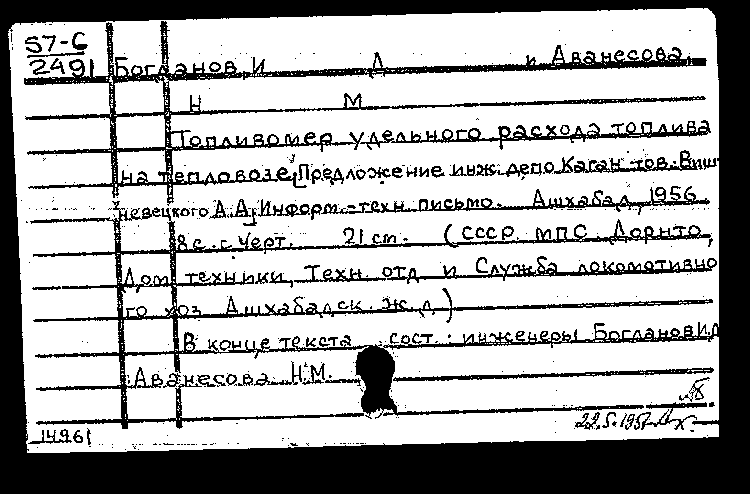 57-6
2491 Богданов, И Д и Аванесова,
Н М
Топливомер удельного расхода топлива
на тепловозе. [Предложение инж. депо Каган тов. Виш
невецкого А.А.] Информ.-техн. письмо. Ашхабад, 1956
8 с. с черт. 21 см. (СССР. МПС. Дорнто,
Дом техники, Техн. отд. и Служба локомотивно
го хоз. Ашхабадск. ж.д.)
В конце текста сост.: инженеры Богданов И.Д
Аванесова Н.М.
14961 22.5.1957